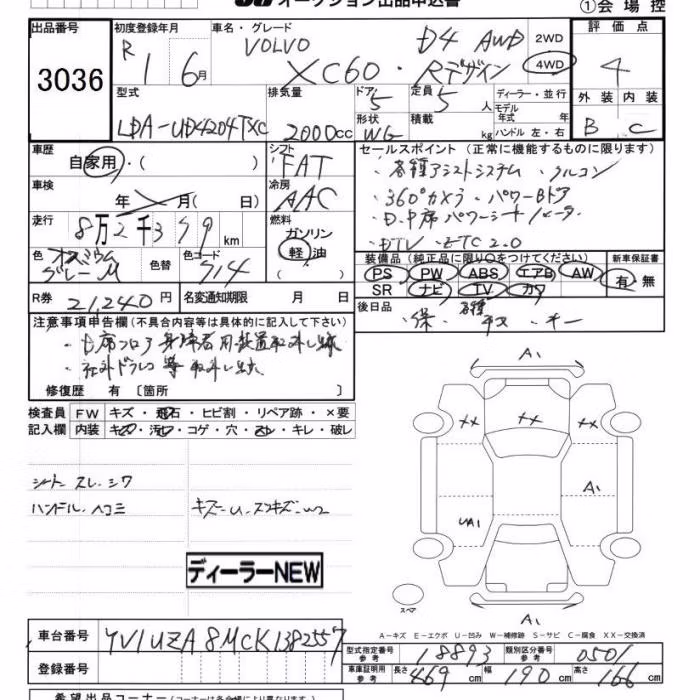 オークション出品申込書
①会場控
出品番号
3036
初度登録年月
R 1 6月
車名・グレード
VOLVO XC60・D4 AWD Rデザイン
2WD
4WD
評価点
4
外装 内装
B C
型式
LDA-UD4204TXC
排気量
2000cc
ドア 5
定員 5人
形状 WG
積載 kg
ディーラー・並行
モデル年式 年式
ハンドル 左・右
車歴
自家用・( )
シフト
FAT
車検
年 月( 日)
冷房
AAC
走行
8万2千359km
燃料
ガソリン
軽油
( )
色
オスミウムグレーM
色替
色コード
714
R券 21,240円
名変通知期限 月 日
セールスポイント (正常に機能するものに限ります)
・各種アシストシステム ・クルコン
・360°カメラ ・パワーBドア
・D.中席パワーシートヒーター
・DTV ・ETC2.0
装備品 (純正品に限り○をつけてください)
PS PW ABS エアB AW
SR ナビ TV カワ
新車保証書
有・無
後日品
・保 ・各種 ・キー
注意事項申告欄 (不具合内容等は具体的に記入して下さい)
・社外ドラレコ等取外し跡
修復歴 有 〔箇所 〕
検査員記入欄
FW キズ・飛石・ヒビ割・リペア跡・×要
内装 キズ・汚レ・コゲ・穴・スレ・キレ・破レ
シート スレ.シワ
ハンドル.ヘコミ
ディーラーNEW
A1
XX XX XX
A1
UA1
A1
スペア
A−キズ E−エクボ U−凹み W−補修跡 S−サビ C−腐食 XX−交換済
車台番号
YV1UZA8MCK1382557
登録番号
型式指定番号 参考
18893
類別区分番号 参考
0501
車庫証明用 参考
長さ 469cm 幅 190cm 高さ 166cm
希望出品コーナー